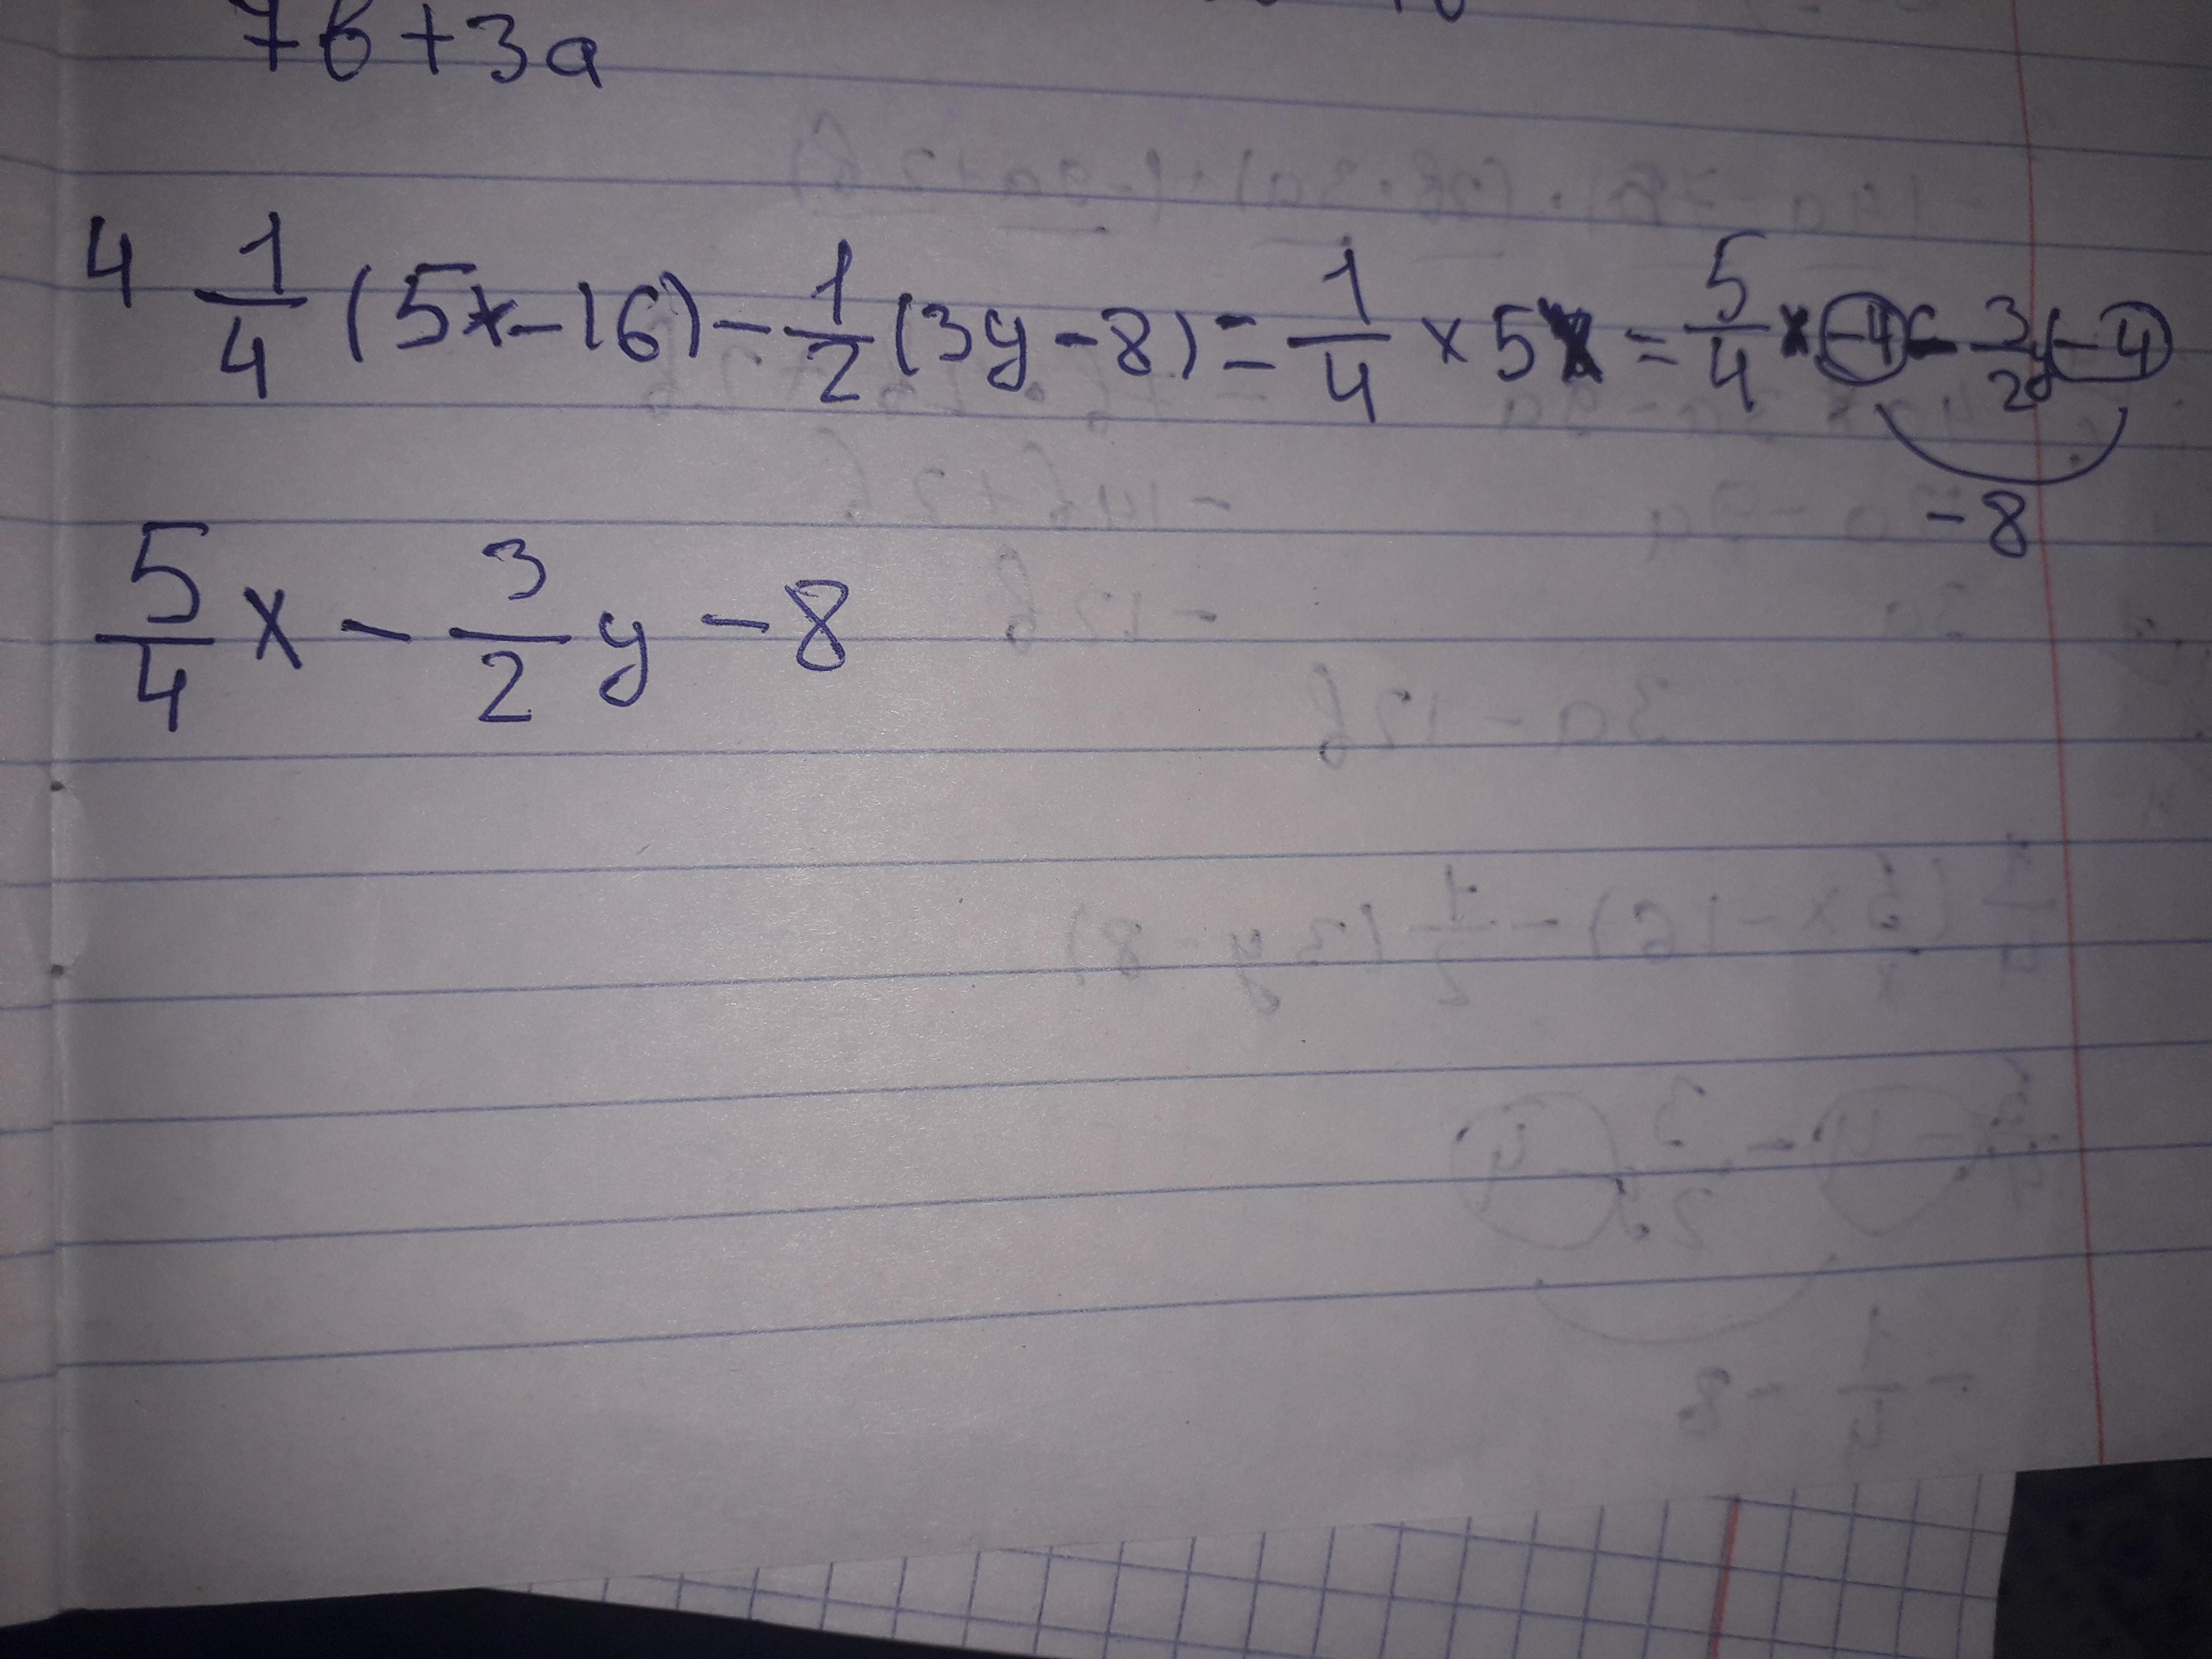 7b+3a
4 1/4 (5x-16) - 1/2 (3y-8) = 1/4 × 5x = 5/4 x -4 - 3/2 y -4
-8
5/4 x - 3/2 y - 8